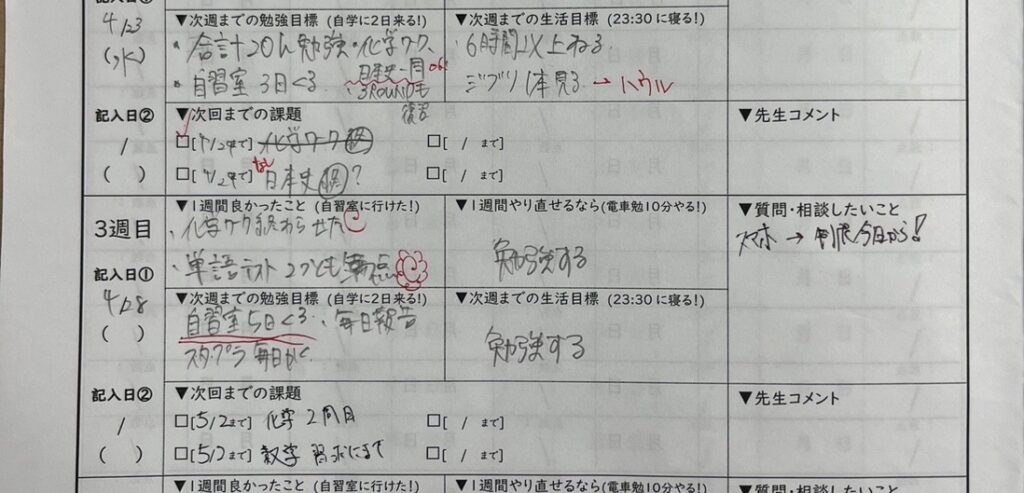 4/23
(水)
▼次週までの勉強目標 (自学に2日来る!)
・合計20h勉強・化学ワーク、
・自習室 3日くる
日本史一周
3ROUNDも
復習
▼次週までの生活目標 (23:30に寝る!)
6時間以上ねる
ジブリ1本見る → ハウル
記入日②
/
( )
▼次回までの課題
□[4/29まで] 化学ワーク
□[4/29まで] 日本史 ?
□[ / まで]
□[ / まで]
▼先生コメント
3週目
記入日①
4/28
( )
▼1週間良かったこと (自習室に行けた!)
・化学ワーク終わらせた
・単語テスト2つとも満点
▼1週間やり直せるなら(電車勉10分やる!)
勉強する
▼質問・相談したいこと
スマホ → 制限今日から!
▼次週までの勉強目標 (自学に2日来る!)
自習室5日くる・毎日報告
スタプラ毎日かく
▼次週までの生活目標 (23:30に寝る!)
勉強する
記入日②
/
( )
▼次回までの課題
□[5/2まで] 化学 2周目
□[5/2まで] 数学
□[ / まで]
□[ / まで]
▼先生コメント
▼1週間良かったこと (自習室に行けた!)
▼1週間やり直せるなら(電車勉10分やる!)
▼質問・相談したいこと